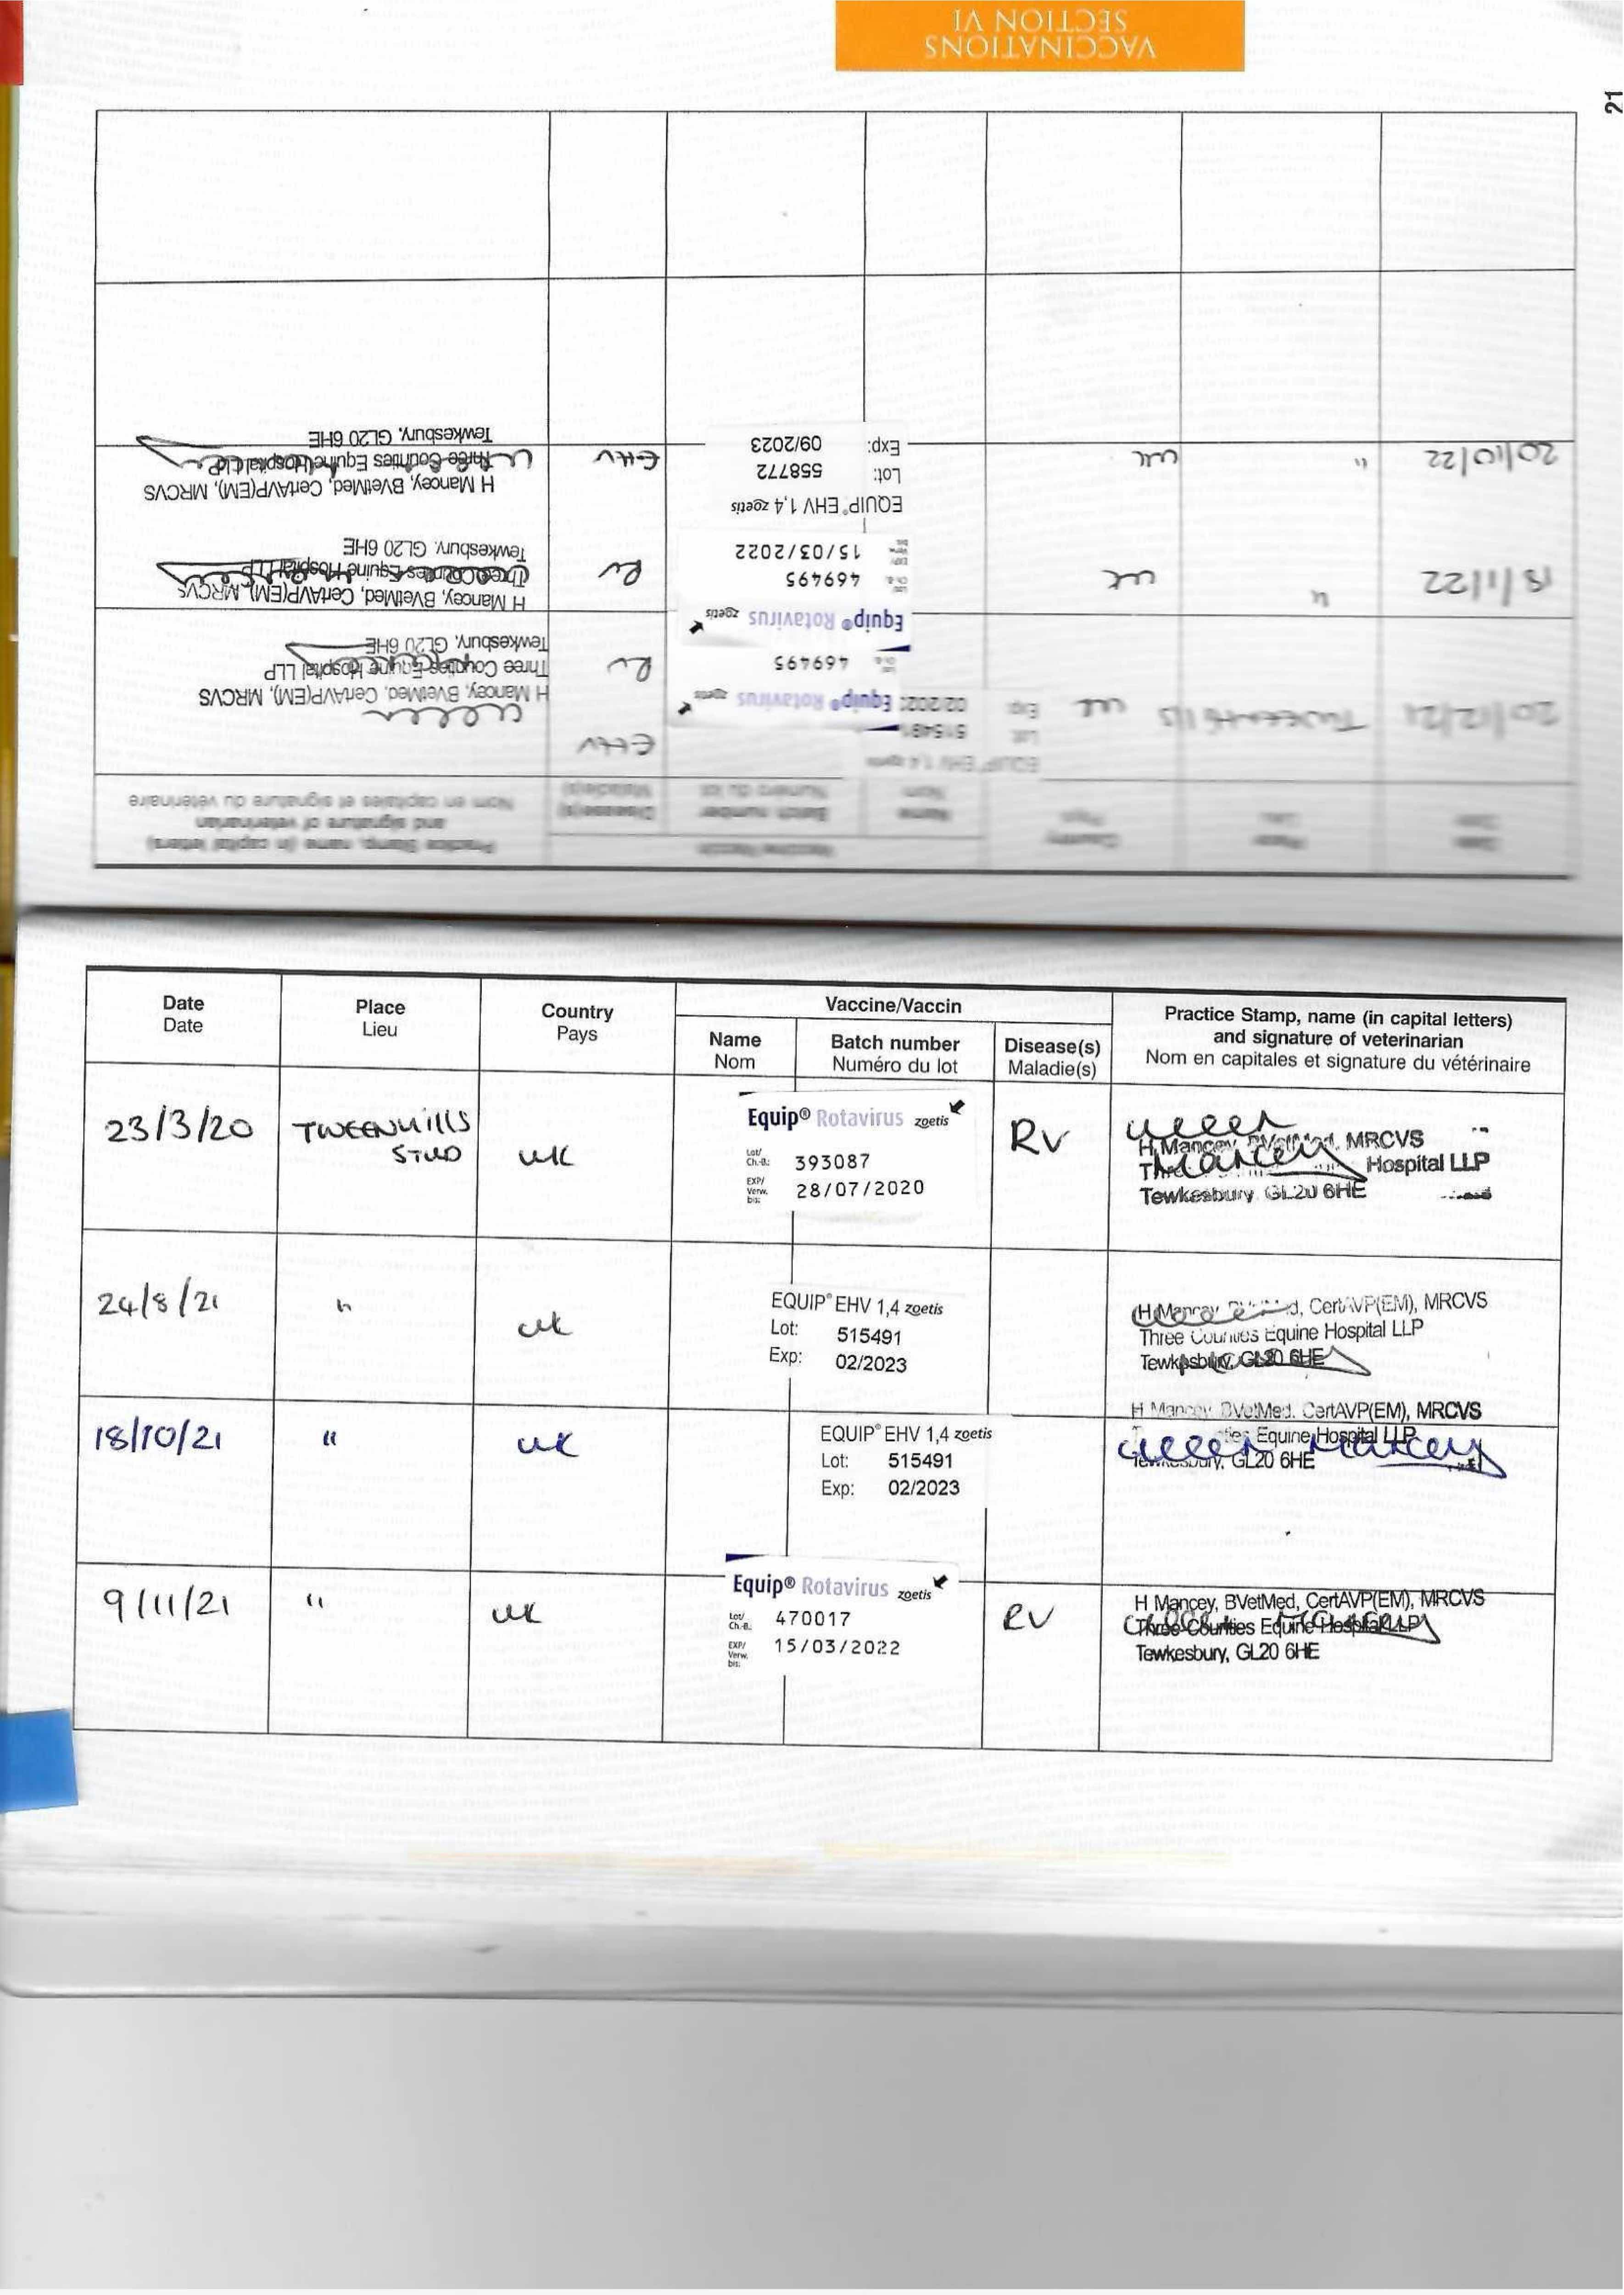 VACCINATIONS
SECTION VI
21
Date Place Country Vaccine/Vaccin Practice Stamp, name (in capital letters)
and signature of veterinarian
Date Lieu Pays Name Batch number Disease(s)
Nom Numéro du lot Maladie(s) Nom en capitales et signature du vétérinaire
EQUIP® EHV 1,4 zoetis
Lot: 515491
Exp: 02/202
EHV
20/12/21 TWEENHILLS UK
Equip® Rotavirus zoetis
469495
RV
H Mancey, BVetMed, CertAVP(EM), MRCVS
Three Counties Equine Hospital LLP
Tewkesbury, GL20 6HE
18/1/22 " UK
Equip® Rotavirus zoetis
Lot/ Ch.-B.: 469495
EXP/ Verw. bis: 15/03/2022
RV
H Mancey, BVetMed, CertAVP(EM), MRCVS
Three Counties Equine Hospital LLP
Tewkesbury, GL20 6HE
20/10/22 " UK
EQUIP® EHV 1,4 zoetis
Lot: 558772
Exp: 09/2023
EHV
H Mancey, BVetMed, CertAVP(EM), MRCVS
Three Counties Equine Hospital LLP
Tewkesbury, GL20 6HE
Date Place Country Vaccine/Vaccin Practice Stamp, name (in capital letters)
and signature of veterinarian
Date Lieu Pays Name Batch number Disease(s)
Nom Numéro du lot Maladie(s) Nom en capitales et signature du vétérinaire
23/3/20 TWEENHILLS
STUD UK
Equip® Rotavirus zoetis
Lot/ Ch.-B.: 393087
EXP/ Verw. bis: 28/07/2020
RV
H Mancey, BVetMed, MRCVS
Hospital LLP
Tewkesbury, GL20 6HE
24/8/21 " UK
EQUIP® EHV 1,4 zoetis
Lot: 515491
Exp: 02/2023
H Mancey CertAVP(EM), MRCVS
Three Counties Equine Hospital LLP
Tewkesbury, GL20 6HE
18/10/21 " UK
EQUIP® EHV 1,4 zoetis
Lot: 515491
Exp: 02/2023
H Mancey, BVetMed, CertAVP(EM), MRCVS
Equine Hospital LLP
Tewkesbury, GL20 6HE
9/11/21 " UK
Equip® Rotavirus zoetis
Lot/ Ch.-B.: 470017
EXP/ Verw. bis: 15/03/2022
RV
H Mancey, BVetMed, CertAVP(EM), MRCVS
Three Counties Equine Hospital LLP
Tewkesbury, GL20 6HE